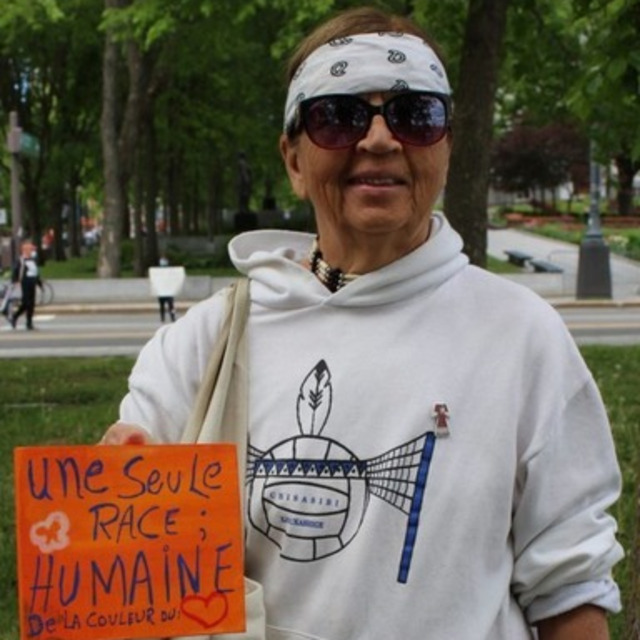 une Seule
RACE ;
HUMAINE
De LA COULEUR DU:
CHISASIBI